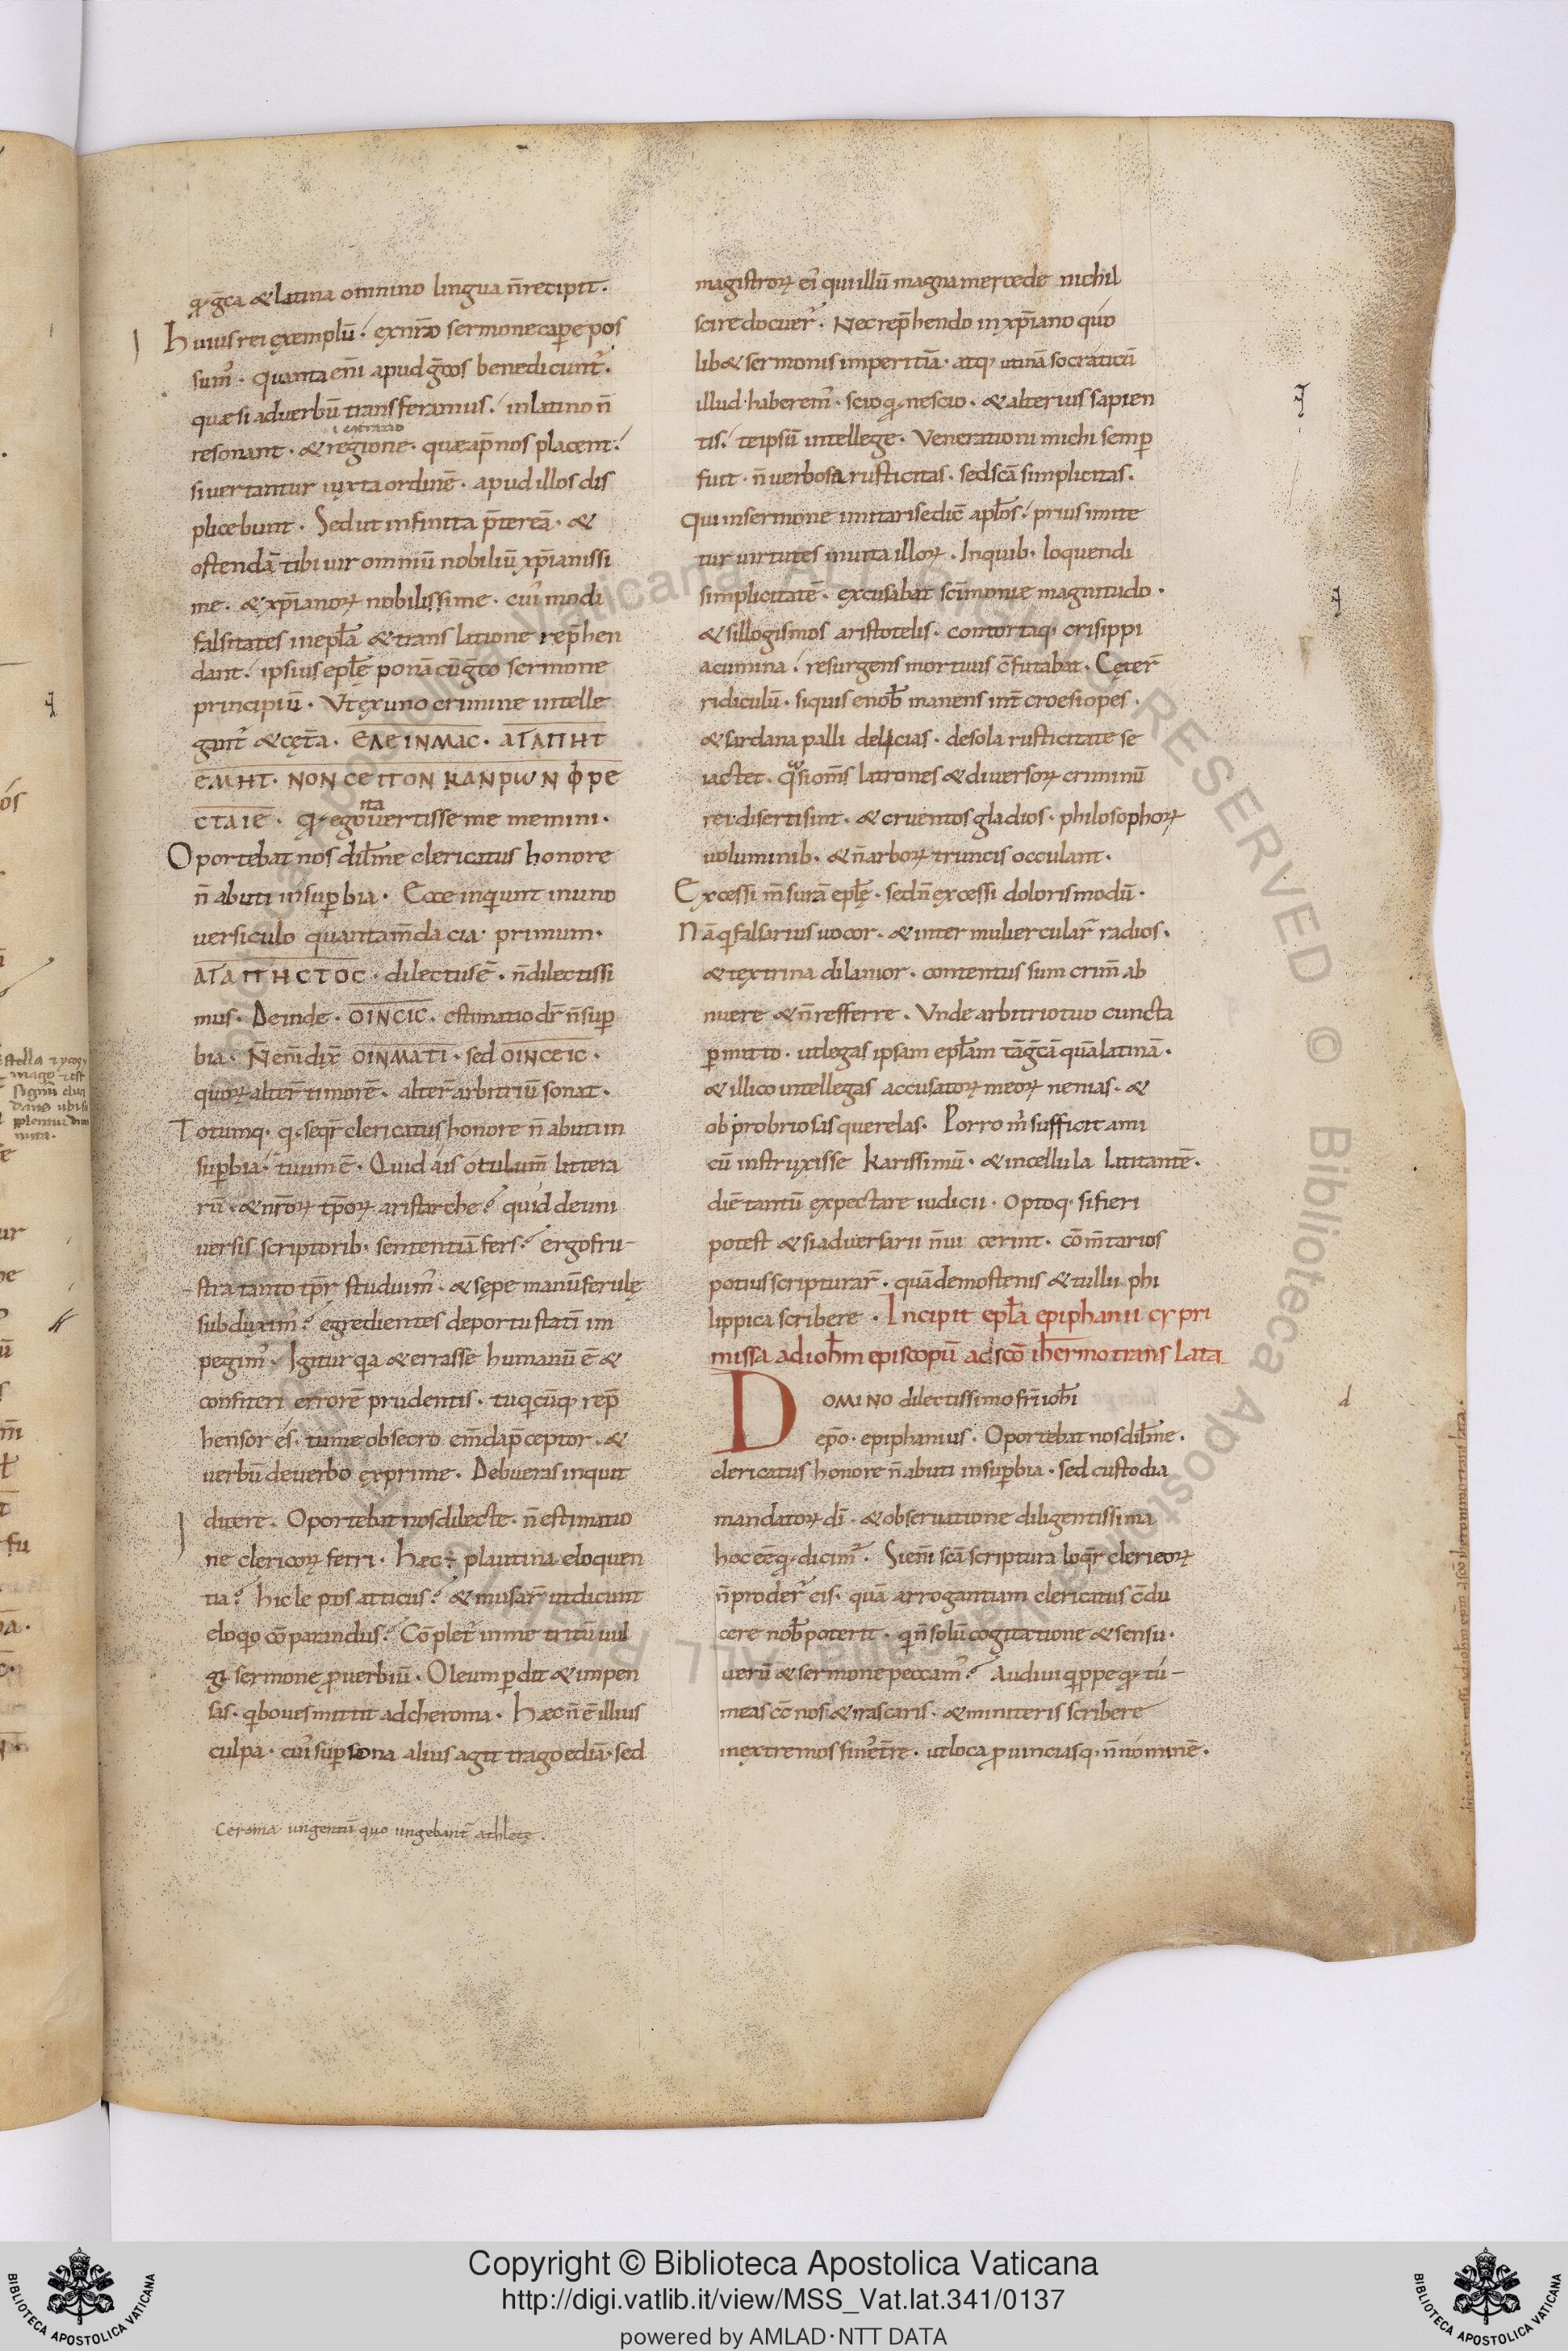 qđ gr̄ca & latina omnino lingua n̄ recipit.
huius rei exemplū. ex nr̄o sermone capere pos
sum᾽. Quanta eni᾽ apud gr̄cos bene dicunt᾽.
quæ si ad verbū transferamus. in latino n̄
i. contrario
resonant. & regione. quæ ap̄ nos placent.
si vertantur iuxta ordinē. apud illos dis
plicebunt. Sed ut infinita p̄teream. &
ostendā tibi uir omniū nobiliū xp̄ianissi
me. & xp̄ianoꝝ nobilissime. cui᾽ modi
falsitates in epl̄a & translatione rep̄hen
dant. ipsius epl̄ę ponā cū gr̄co sermone
principiū. Ut ex uno crimine intelle
gant᾽ & cęt̄a. ЄΛЄINMAC. AΓAΠHT
ЄMHT. NON CЄITON KANPωN ΦPЄ
CTAIЄ. Qđ ego ita vertisse me memini.
Oportebat nos dil̄me clericatus honore
n̄ abuti in sup̱bia. Ecce inquiunt in uno
versiculo quanta m̄dacia. primum.
AΓAΠHCTOC. dilectus ē. n̄ dilectissi
mus. Deinde. OINCIC. estimatio dr̄ n̄ sup̱
bia. N̄ eni᾽ dix̄ OINMATI. sed OINCЄIC.
quoꝝ alter̄ timorē. alter̄ arbitriū sonat.
Totumq;. qđ seqr̄ clericatus honore n̄ abuti in
sup̱bia. tuum ē. Quid ais o tulum̄ littera
rū. & nr̄oꝝ tp̄oꝝ aristarche? quid de uni
versis scriptorib; sententiā fers? ergo fru-
stra tanto tp̄r studuim᾽. & sępe manū ferulę
subduxim᾽? egredientes de portu stati᾽ im
pegim᾽. Igitur qa & errasse humanū ē &
confiteri errorē prudentis. tu qcūq; rep̄
hensor es. tu me obsecro em̄da p̄ceptor. &
verbū de verbo exprime. Debueras inquit
dicere. Oportebat nos dilecte. n̄ estimatio
ne clericoꝝ ferri. Hæc ÷ plautina eloquen
tia? hic lepos atticus? & musar̄ ut dicunt
eloqo cōparandus? Cōplet᾽ in me tritū uul
gi sermone p̱verbiū. Oleum p̱dit & impen
sas. qi boves mittit ad cheroma. Hæc n̄ ē illius
culpa. cui᾽ sup̱ sona alius agit tragoediā. sed
Ceroma ungentū quo ungebant᾽ athletę.
magistroꝝ ei᾽ qui illū magna mercede nichil
scire docuer᾽. Nec rep̄hendo in xp̄iano quo
lib& sermonis imperitiā. atq; utinā socraticū
illud haberem᾽. scio qđ nescio. & alterius sapien
tis. te ipsū intellege. Venerationi michi semp̱
fuit. n̄ verbosa rusticitas. sed scā simplicitas.
Qui in sermone imitari se dic̄ apl̄os. prius imite
tur virtutes in vita illoꝝ. In quib; loquendi
simplicitatē. excusabat scīmoniæ magnitudo.
& sillogismos aristotelis. contortaq; crisippi
acumina. resurgens mortuus cōfutabat. Cęter̄
ridiculū. si quis e nob̄ manens int̄ croesi opes.
& sardanapalli delicias. de sola rusticitate se
iactet. quasi om̄s latrones & diversoꝝ criminū
rei diserti sint. & cruentos gladios. philosophoꝝ
voluminib; & n̄ arboꝝ truncis occulant.
Excessi m̄surā epl̄ę. sed n̄ excessi doloris modū.
Nā qi falsarius vocor. & inter muliercular̄ radios.
& textrina dilanior. contentus sum crim̄ ab
nuere & n̄ refferre. Unde arbitrio tuo cuncta
p̱mitto. ut legas ipsam epl̄am tā gr̄cā quā latinā.
& illico intellegas accusatoꝝ meoꝝ nenias. &
obprobriosas querelas. Porro m᾽ sufficit ami
cū instruxisse karissimū. & in cellula latitantē.
diē tantū expectare iudicii. Optoq; si fieri
potest & si adversarii n̄ iu cerint. cōm̄tarios
potius scripturar̄. quā demostenis & tullii phi
lippica scribere. Incipit epl̄a epiphanii cypri
missa ad ioh̄m episcopū a scō ih̄ermo translata
DOMINO dilectissimo fr̄i ioh̄i
ep̄o. epiphanius. Oportebat nos dil̄me.
clericatus honore n̄ abuti in sup̱bia. sed custodia
mandatoꝝ dī. & observatione diligentissima
hoc eē qđ dicim᾽. Si eni᾽ scā scriptura loqr̄ clericoꝝ
n̄ proder᾽ eis. quā arrogantiam clericatus cōdu
cere nob̄ poterit. qi n̄ solū cogitatione & sensu.
verū & sermone peccam᾽? Audivi qippe qđ tu-
meas cō nos & irascaris. & miniteris scribere
in extremos fines t̄re. ut loca p̱vinciasq; n̄ nominē.